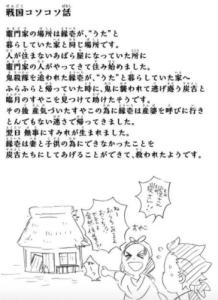 戦国コソコソ話
竈門家の場所は縁壱が、"うた"と
暮らしていた家と同じ場所です。
人が住まないあばら屋になっていた所に
竈門家の人がやってきて住み始めました。
鬼殺隊を追われた縁壱が"うた"と暮らしていた家へ
ふらふらと帰っていた時に、鬼に襲われて逃げ遅う炭吉と
臨月のすやこを見つけて助けたそうです。
その後 産気づいたすやこの為に縁壱は産婆を呼びに行き
とんでもない速さで帰ってきました。
翌日 無事にすみれが生まれました。
縁壱は妻と子供の為にできなかったことを
炭吉たちにしてあげることができて、救われたようです。